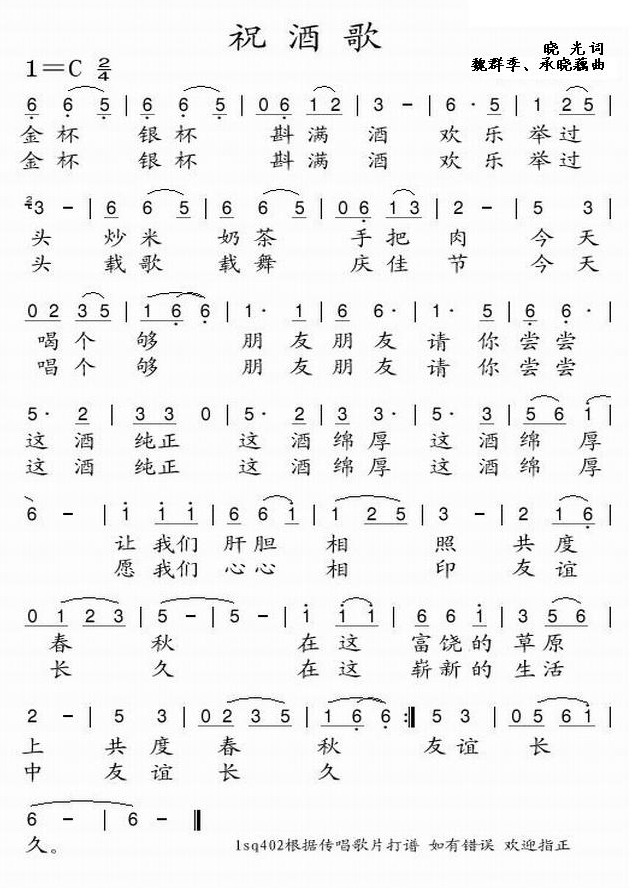 祝酒歌
晓光词
1=C 2/4
魏群季、承晓藕曲
6 6 5 | 6 6 5 | 0 6 1 2 | 3 - | 6· 5 | 1 2 5 |
金杯 银杯 斟满 酒 欢乐举过
金杯 银杯 斟满 酒 欢乐举过
2 3 - | 6 6 5 | 6 6 5 | 0 6 1 3 | 2 - | 5 3 |
头 炒米 奶茶 手把 肉 今天
头 载歌 载舞 庆佳 节 今天
0 2 3 5 | 1 6 6 | 1· 1 | 6 6· | 1· 5 | 6 6 |
喝个 够 朋友朋友 请你尝尝
唱个 够 朋友朋友 请你尝尝
5· 2 | 3 3 0 | 5· 2 | 3 3· | 5· 3 | 5 6 1 |
这酒 纯正 这酒绵厚 这酒绵厚
这酒 纯正 这酒绵厚 这酒绵厚
6 - | 1 1 1 | 6 6 1 | 1 2 5 | 3 - | 2 1 6 |
让我们 肝胆 相 照 共度
愿我们 心心 相 印 友谊
0 1 2 3 | 5 - | 5 - | 1 1 1 | 6 6 1 | 3 5 6 |
春 秋 在这 富饶的 草原
长 久 在这 崭新的 生活
2 - | 5 3 | 0 2 3 5 | 1 6 6 :‖ 5 3 | 0 5 6 1 |
上 共度 春 秋 友谊 长
中 友谊 长 久
6 - | 6 - ‖
久。 lsq402根据传唱歌片打谱 如有错误 欢迎指正